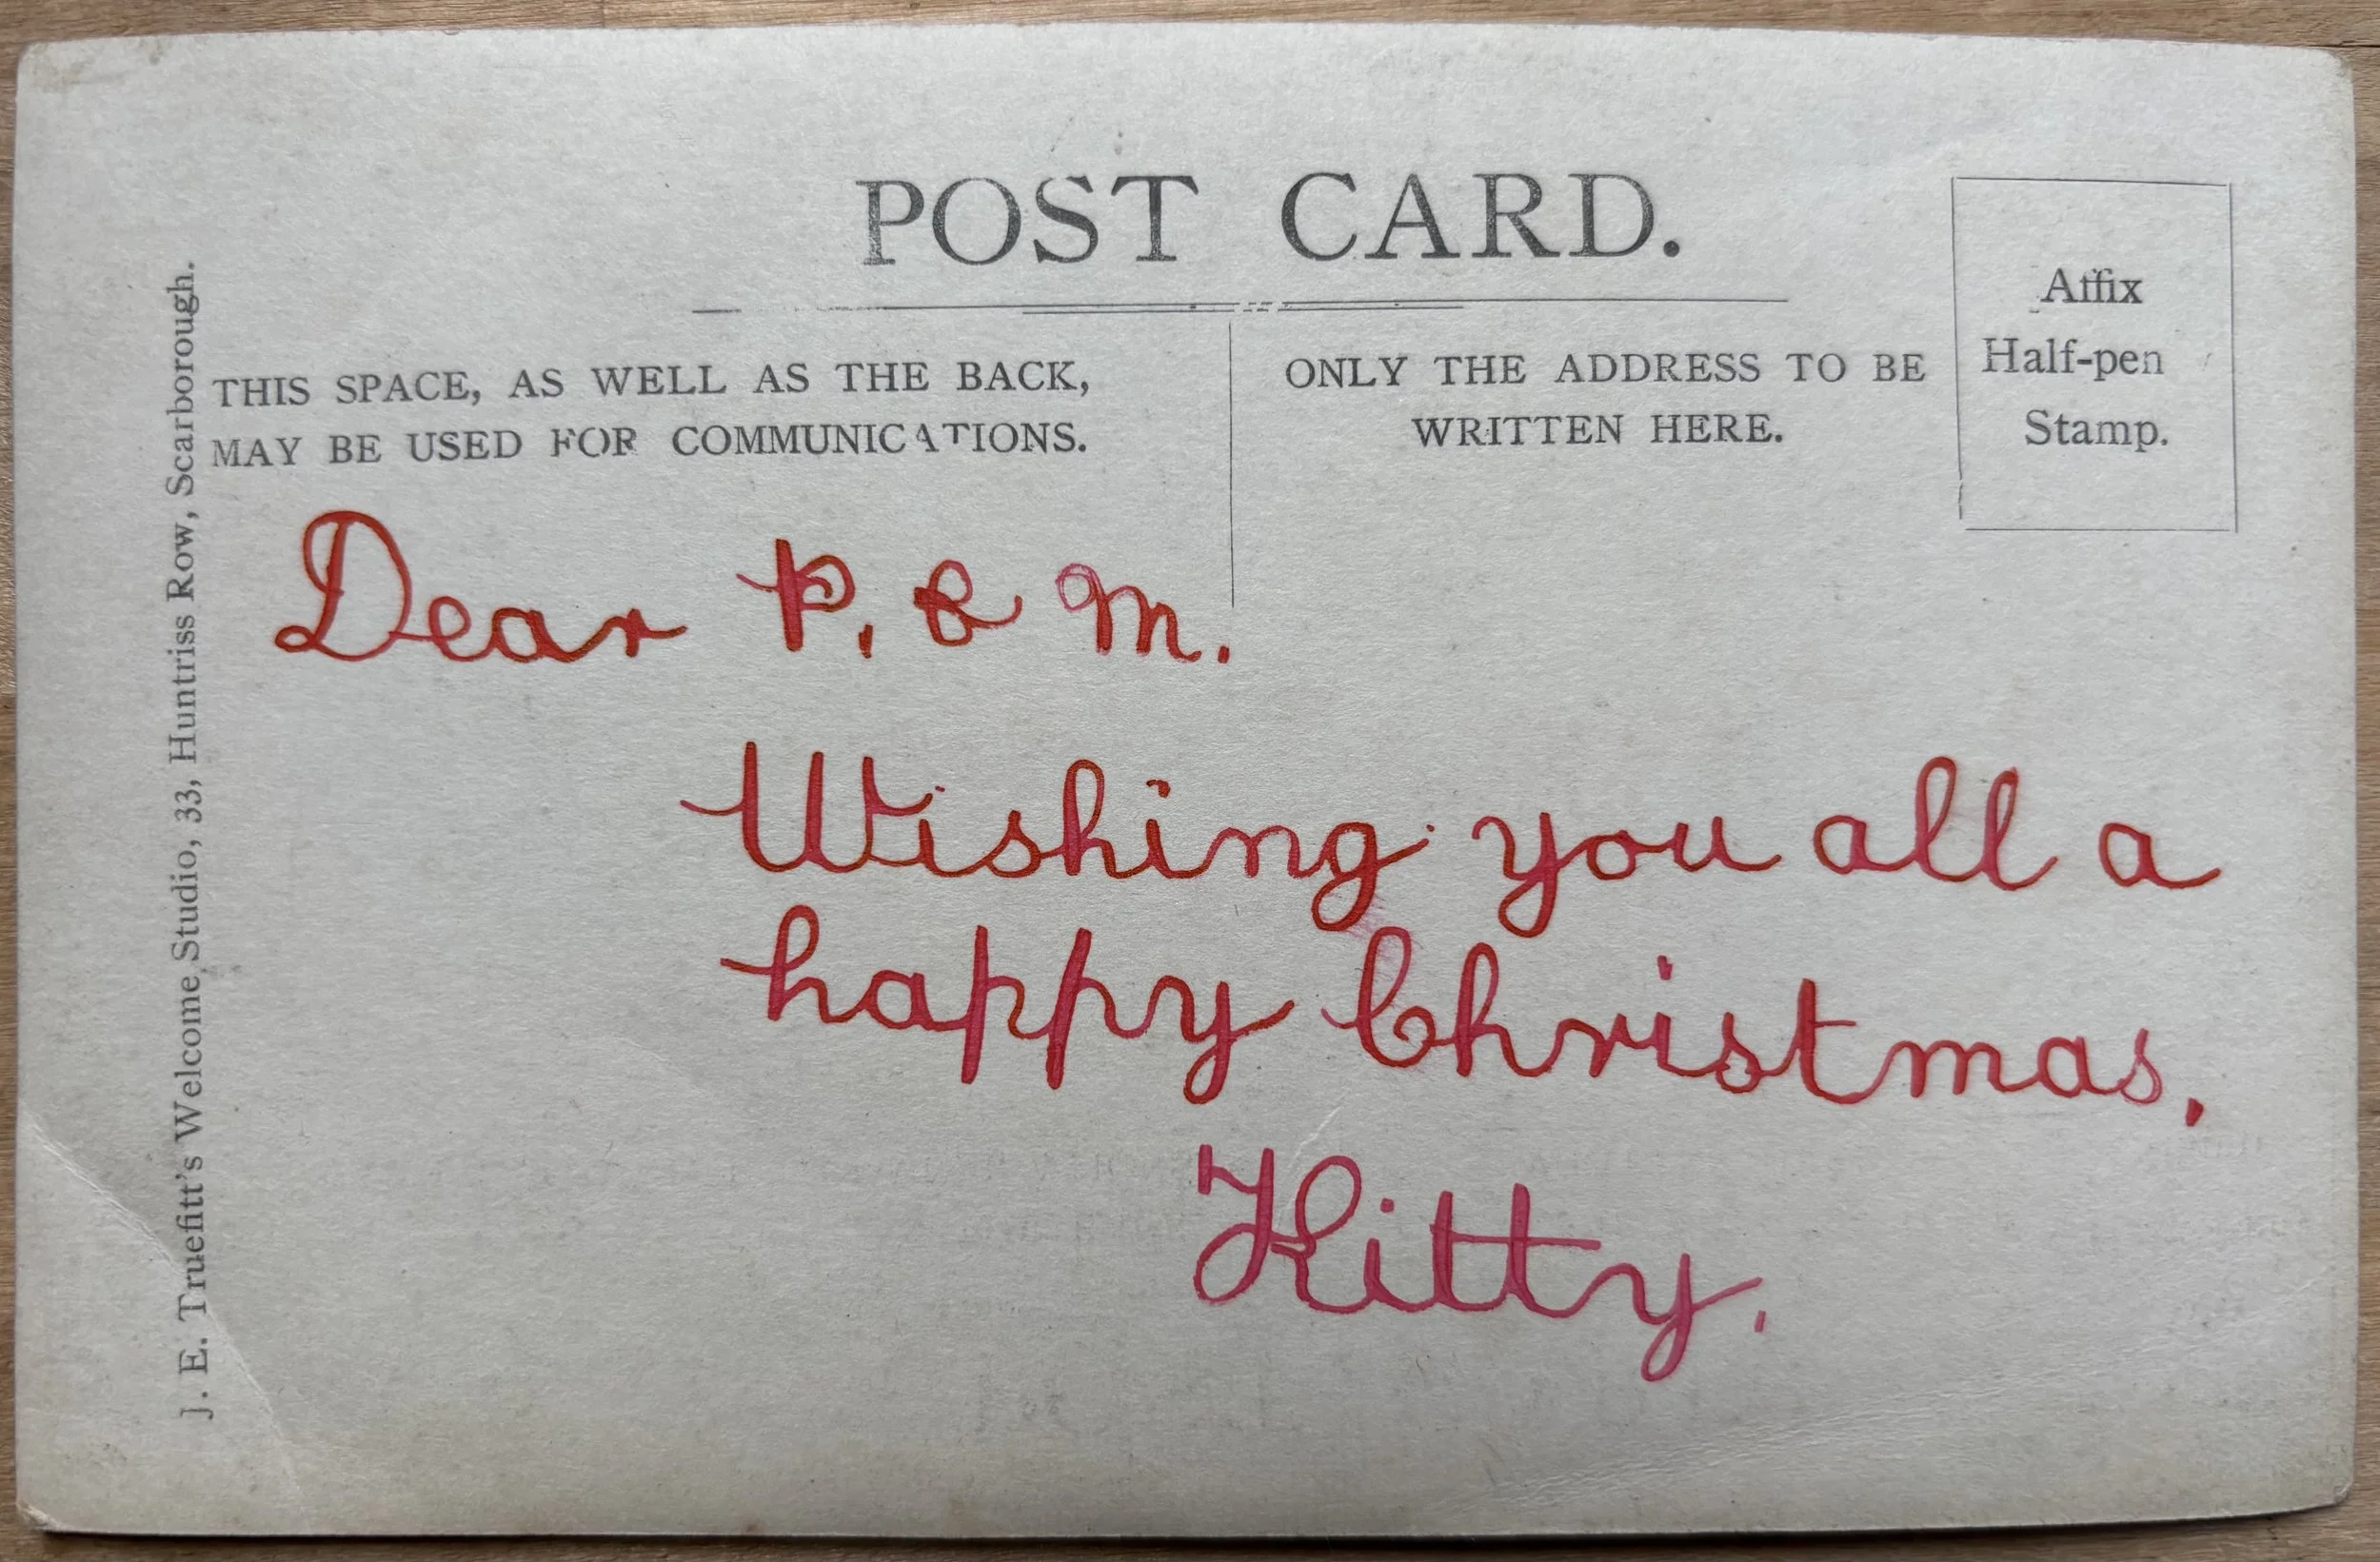 POST CARD.
THIS SPACE, AS WELL AS THE BACK,
MAY BE USED FOR COMMUNICATIONS.
ONLY THE ADDRESS TO BE
WRITTEN HERE.
Affix
Half-pen
Stamp.
J. E. Truefitt's Welcome Studio, 33, Huntriss Row, Scarborough.
Dear P. & M.
Wishing you all a
happy Christmas.
Kitty.